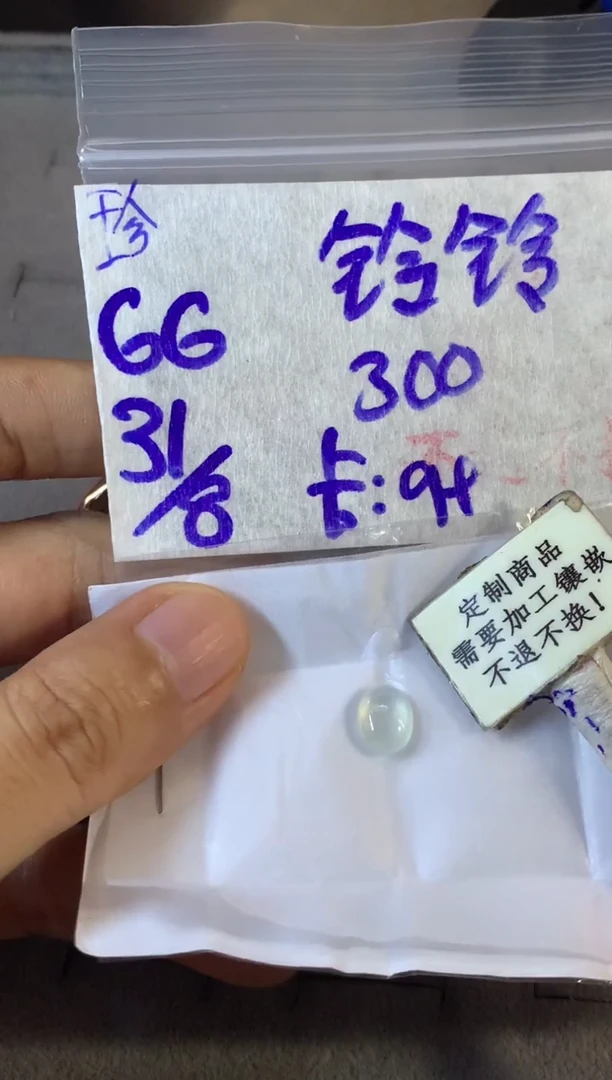 珍
铃铃
GG
300
31/8
卡:94
定制商品
需要加工镶嵌
不退不换!